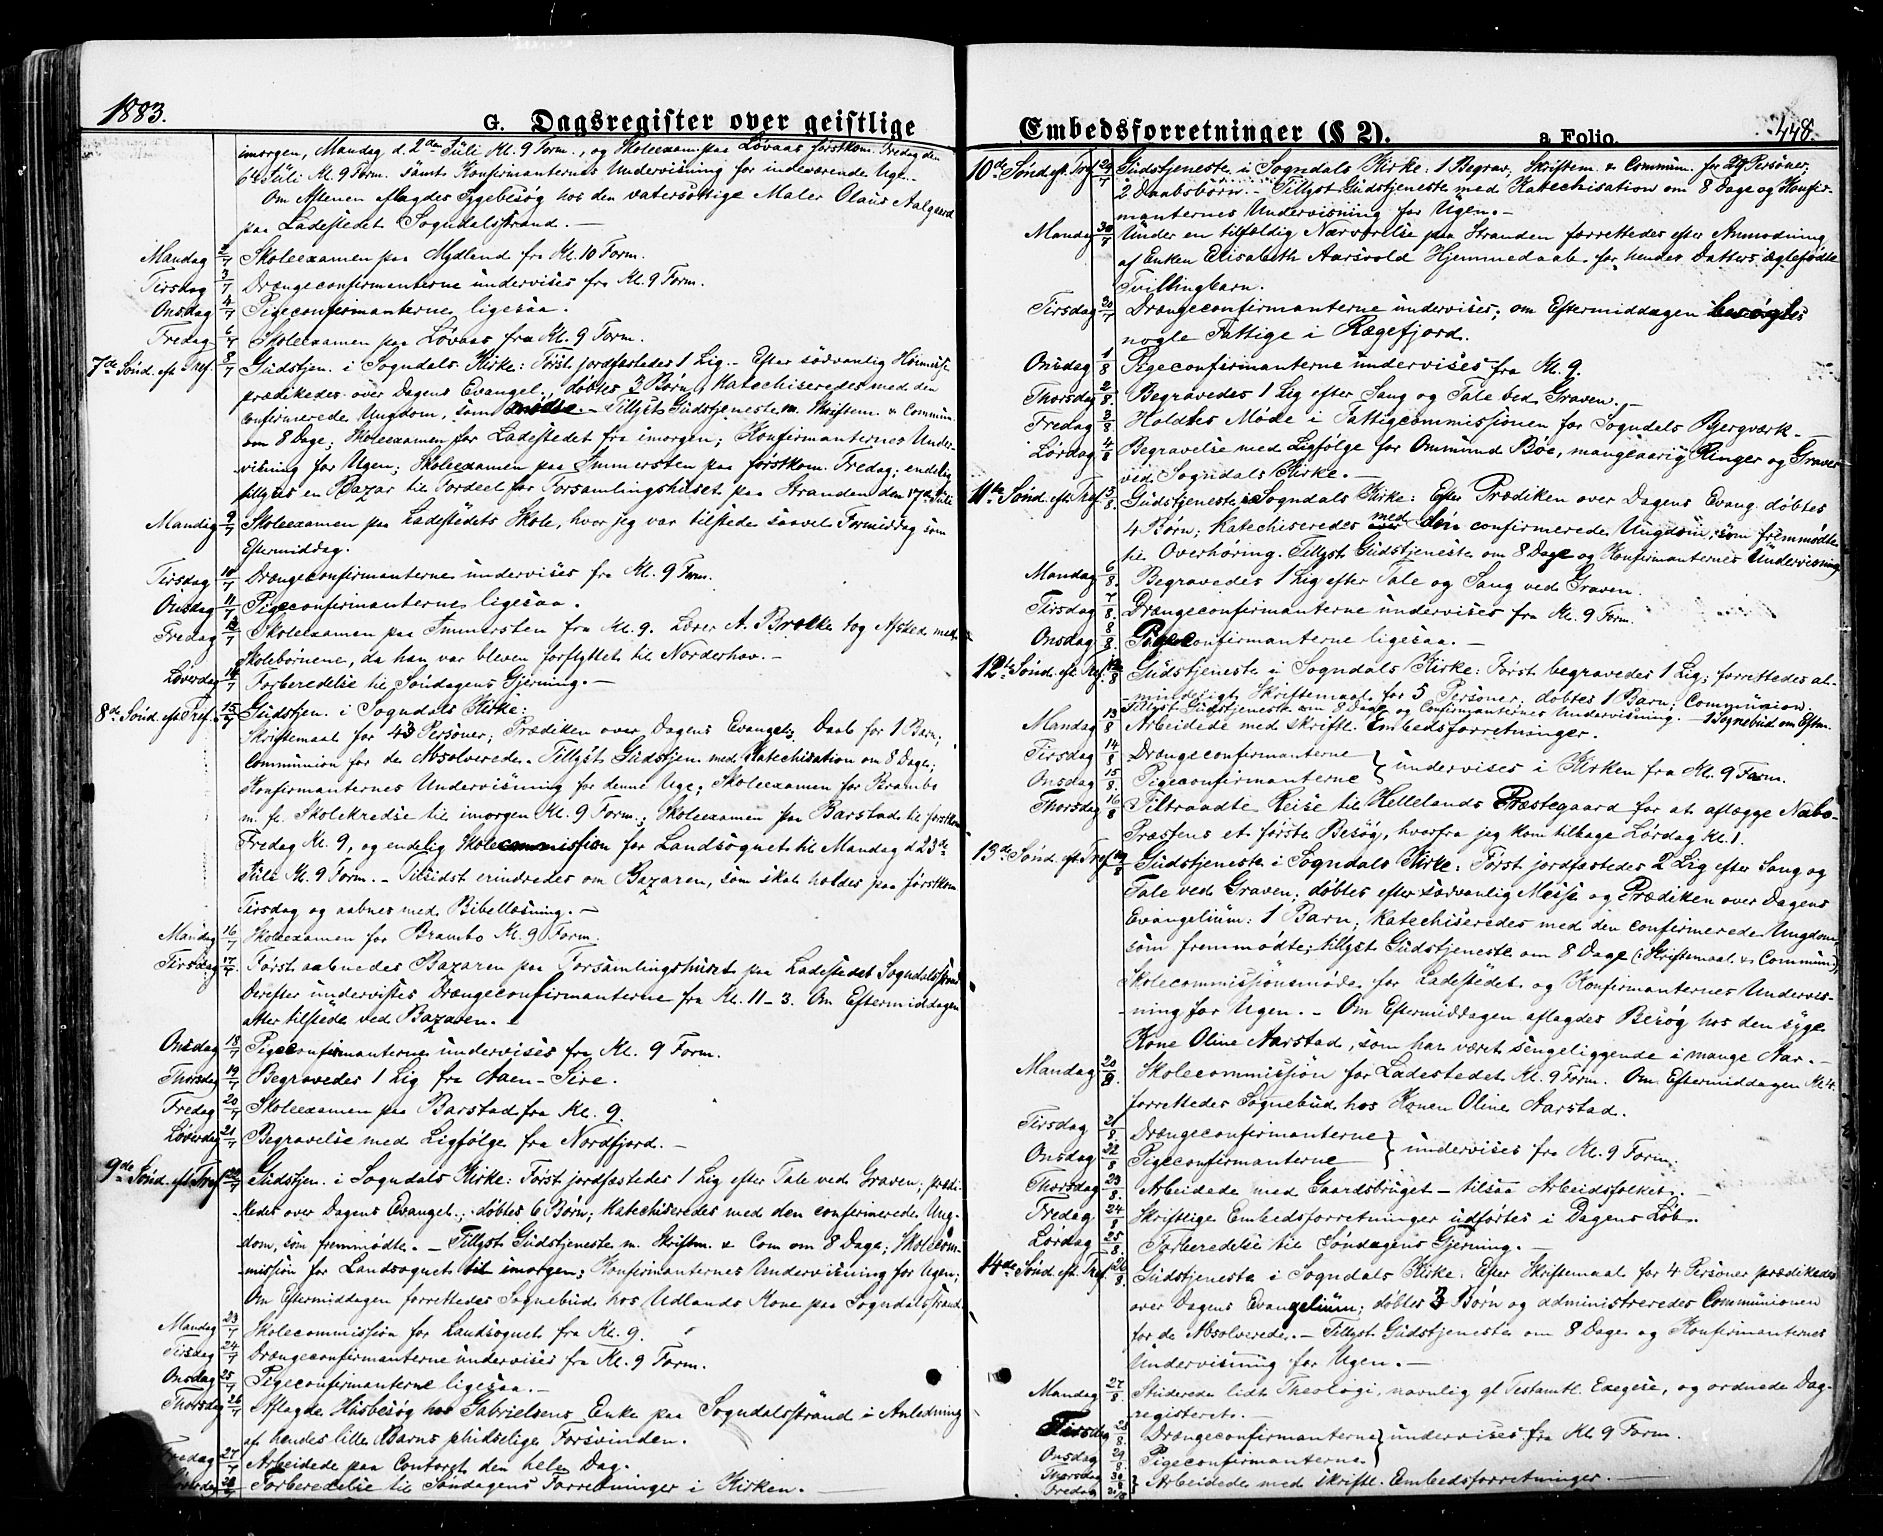 1883.
G. Dagsregister over geistlige
imorgen, Mandag d. 2den Juli Kl. 9 Form., og Skoleexam. paa Løvaas førstkom. Fredag den
6te Juli Kl. 9 Form. samt Konfirmanternes Undervisning for indeværende Uge.
Om Aftenen aflagdes Sygebesøg hos den vatersottige Maler Olaus Aalgaard
paa Ladestedet Sogndalsstrand. —
Mandag 2/7 Skoleexamen paa Mydland fra Kl. 10 Form.
Tirsdag 3/7 Drængeconfirmanterne undervises fra Kl. 9 Form.
Onsdag 4/7 Pigeconfirmanterne ligesaa.
Fredag 6/7 Skoleexamen paa Løvaas fra Kl. 9 Form.
7de Sønd. eft. Tref. 8/7 Gudstjen. i Sogndals Kirke: Først jordfæstedes 1 Lig. — Efter sædvanlig Høimesse
prædikedes over Dagens Evangel., døbtes 3 Børn, Katechiseredes med den
confirmerede Ungdom, som mødte. — Tillyst Gudstjeneste m. Skriftem. & Commun.
om 8 Dage; Skoleexamen for Ladestedet fra imorgen; Konfirmanternes Under-
-visning for Ugen; Skoleexamen paa Immersten paa førstkom. Fredag; endelig
tillystes en Bazar til Fordeel for Forsamlingshuset paa Stranden den 17de Juli
Mandag 9/7 Skoleexamen paa Ladestedets Skole, hvor jeg var tilstede saavel Formiddag som
Eftermiddag.
Tirsdag 10/7 Drængeconfirmanterne undervises fra Kl. 9 Form.
Onsdag 11/7 Pigeconfirmanterne ligesaa.
Fredag 13/7 Skoleexamen paa Immersten fra Kl. 9. Lærer A. Brække tog Afsked med
Skolebørnene, da han var bleven forflyttet til Norderhov. —
Løverdag 14/7 Forberedelse til Søndagens Gjerning. —
8de Sønd. eft. Tref. 15/7 Gudstjen. i Sogndals Kirke:
Skriftemaal for 43 Personer; Prædiken over Dagens Evangel; Daab for 1 Barn;
Communion for de Absolverede. Tillyst Gudstjen. med Katechisation om 8 Dage;
Konfirmanternes Undervisning for denne Uge; Skoleexamen for Brambo
m. fl. Skolekredse til imorgen Kl. 9 Form.; Skoleexamen paa Barstad til førstkom
Fredag Kl. 9, og endelig Skolecommission for Landsognet til Mandag d. 23de
Juli Kl. 9 Form. — Tilsidst erindredes om Bazaren, som skal holdes paa førstkom
Tirsdag og aabnes med Bibellæsning. —
Mandag 16/7 Skoleexamen for Brambo Kl. 9 Form.
Tirsdag 17/7 Først aabnedes Bazaren paa Forsamlingshuset paa Ladestedet Sogndalsstrand
Derefter undervistes Drængeconfirmanterne fra Kl. 11–3. Om Eftermiddagen
atter tilstede ved Bazaren. —
Onsdag 18/7 Pigeconfirmanterne undervises fra Kl. 9 Form.
Thorsdag 19/7 Begravedes 1 Lig fra Aaen-Sire.
Fredag 20/7 Skoleexamen paa Barstad fra Kl. 9.
Løverdag 21/7 Begravelse med Ligfølge fra Nordfjord. —
9de Sønd. eft. Tref. 22/7 Gudstjen. i Sogndals Kirke: Først jordfæstedes 1 Lig efter Tale ved Graven; prædi-
-kedes over Dagens Evangel.; døbtes 6 Børn; Katechiseredes med den confirmerede Ung-
dom, som fremmødte. — Tillyst Gudstjeneste m. Skriftm. & Com om 8 Dage; Skolecom-
-mission for Landsognet til imorgen; Konfirmanternes Undervisning for Ugen;
Om Eftermiddagen forrettedes Sognebud hos Udlands Kone paa Sogndalsstrand.
Mandag 23/7 Skolecommission for Landsognet fra Kl. 9.
Tirsdag 24/7 Drængeconfirmanterne undervises fra Kl. 9 Form.
Onsdag 25/7 Pigeconfirmanterne ligesaa. —
Thorsdag 26/7 Aflagde Husbesøg hos Gabrielsens Enke paa Sogndalsstrand i Anledning
af hendes lille Barns pludselige Forsvinden.
Fredag 27/7 Arbeidede paa Contoret den hele Dag.
Løverdag 28/7 Forberedelse til Søndagens Forretninger i Kirken. —
Embedsforretninger (§ 2).
a Folio.
448.
10de Sønd. eft. Tref. 29/7 Gudstjeneste i Sogndals Kirke: 1 Begrav, Skriftem. & Commun. for Personer;
2 Daabsbørn. — Tillyst Gudstjeneste med Katechisation om 8 Dage og Konfir-
manternes Undervisning for Ugen. —
Mandag 30/7 Under en tilfældig Nærværelse paa Stranden forrettedes efter Anmodning
af Enken Elisabeth Aarsvold Hjemmedaab for hendes Datters ægtefødte
Tvillingbarn.
Tirsdag Drængeconfirmanterne undervises; om Eftermiddagen besøgtes
nogle Fattige i Rægefjord.
Onsdag 1/8 Pigeconfirmanterne undervises fra Kl. 9.
Thorsdag 2/8 Begravedes 1 Lig efter Sang og Tale ved Graven. —
Fredag 3/8 Holdtes Møde i Fattigcommissionen for Sogndals Bjergværk —
Lørdag 4/8 Begravelse med Ligfølge for Ommund Bøe, mangeaarig Ringer og Graver
ved Sogndals Kirke. —
11te Sønd. eft. Tref. 5/8 Gudstjeneste i Sogndals Kirke: Efter Prædiken over Dagens Evang. døbtes
4 Børn; Katechiseredes med den confirmerede Ungdom, som fremmødte
til Overhøring. Tillyst Gudstjeneste om 8 Dage og Konfirmanternes Undervisning
Mandag 6/8 Begravedes 1 Lig efter Tale og Sang ved Graven.
Tirsdag 7/8 Drængeconfirmanterne undervises fra Kl. 9 Form.
Onsdag 8/8 Pigeconfirmanterne ligesaa. —
12te Sønd. eft. Tref. 12/8 Gudstjeneste i Sogndals Kirke: Først begravedes 1 Lig; forrettedes al-
-mindeligt Skriftemaal for 5 Personer; døbtes 1 Barn; Communion.
Tillyst Gudstjeneste om 8 Dage og Confirmanternes Undervisning. — 1 Sognebud om Eftm.
Mandag 13/8 Arbeidede med skriftl. Embedsforretninger.
Tirsdag 14/8 Drængeconfirmanterne } undervises i Kirken fra Kl. 9 Form.
Onsdag 15/8 Pigeconfirmanterne
Thorsdag 16/8 Tiltraadte Reise til Hellelands Præstegaard for at aflægge Nabo-
Præstens et første Besøg, hvorfra jeg kom tilbage Lørdag Kl. 1.
13de Sønd. eft. Tref. 19/8 Gudstjeneste i Sogndals Kirke: Først jordfæstedes 2 Lig efter Sang og
Tale ved Graven; døbtes efter sædvanlig Messe og Prædiken over Dagens
Evangelium: 1 Barn; Katechiseredes med den confirmerede Ungdom,
som fremmødte; tillyst Gudstjeneste om 8 Dage (Skriftemaal & Commun);
Skolecommissionsmøde for Ladestedet og Konfirmanternes Undervis-
-ning for Ugen. — Om Eftermiddagen aflagdes Besøg hos den syge
Kone Oline Aarstad, som har været sengeliggende i mange Aar. —
Mandag 20/8 Skolecommission for Ladestedet Kl. 9 Form. Om Eftermiddagen Kl. 4
forrettedes Sognebud hos Konen Oline Aarstad.
Tirsdag 21/8 Drængeconfirmanterne } undervises fra Kl. 9 Form.
Onsdag 22/8 Pigeconfirmanterne
Thorsdag 23/8 Arbeidede med Gaardsbruget — tilsaa Arbeidsfolket. —
Fredag 24/8 Skriftlige Embedsforretninger udførtes i Dagens Løb.
Lørdag 25/8 Forberedelse til Søndagens Gjerning. —
14de Sønd. eft. Tref. 26/8 Gudstjeneste i Sogndals Kirke: Efter Skriftemaal for 4 Personer prædikedes
over Dagens Evangelium; døbtes 3 Børn og administreredes Communionen
for de Absolverede. — Tillyst Gudstjeneste om 8 Dage og Konfirmanternes
Undervisning for Ugen. —
Mandag 27/8 Studerede lidt Theologi, navnlig gl. Testamtl. Exegese, og ordnede Dag-
registeret. —
Tirsdag 28/8 Drængeconfirmanterne } undervises fra Kl. 9 Form.
Onsdag 29/8 Pigeconfirmanterne
Thorsdag 30/8 } Arbeidede med skriftl. Embedsforretninger. —
Fredag 31/8